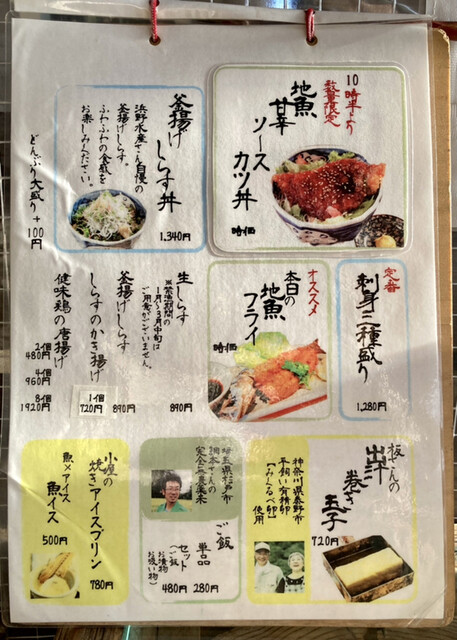 10時半より
数量限定
地魚
甘辛
ソース
カツ丼
時価
釜揚げ
しらす丼
浜野水産さん自慢の
釜揚げしらす。
ふわふわの食感を
お楽しみください。
1,340円
どんぶり大盛り+100円
定番
刺身三種盛り
1,280円
オススメ
本日の
地魚
フライ
時価
生しらす
※禁漁期間の
1月~3月中旬は
ご用意がございません。
890円
釜揚げしらす
890円
しらすのかき揚げ
1個
720円
健味鶏の唐揚げ
2個
480円
4個
960円
8個
1920円
板さんの
出汁
巻き
玉子
720円
神奈川県秦野市
平飼い有精卵
【みくるべ卵】
使用
埼玉県杉戸市
完全無農薬米
ご飯
単品
280円
セット
(ご飯
お漬物
お吸い物)
480円
小屋の
焼きアイスプリン
780円
魚×アイス
魚イス
500円